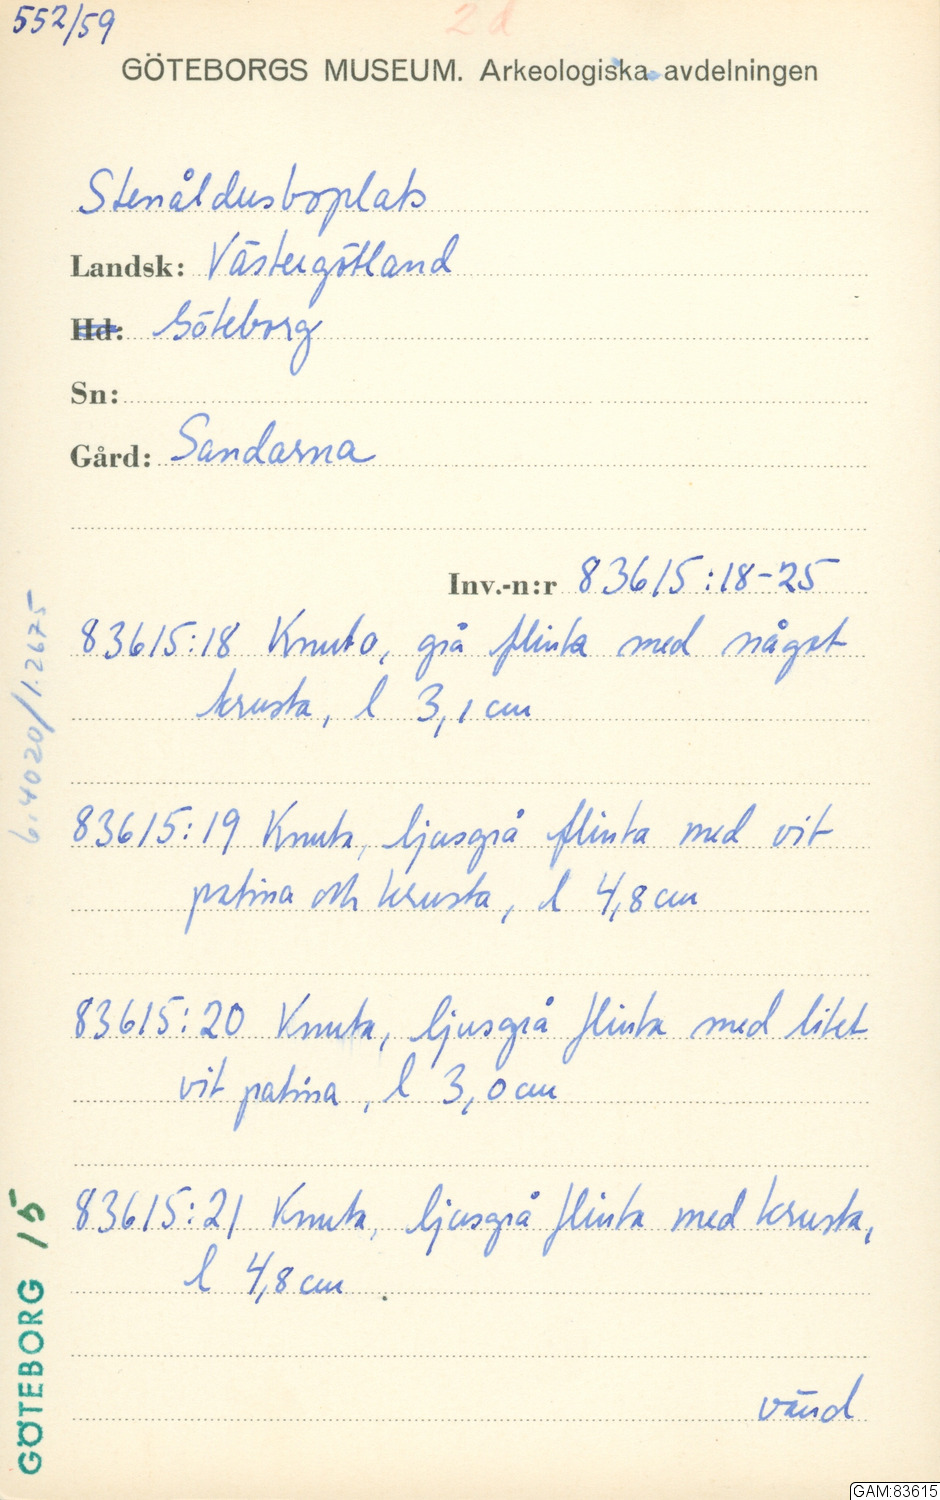 552/59
2d
GÖTEBORGS MUSEUM. Arkeologiska avdelningen
Stenåldersboplats
Landsk: Västergötland
Hd: Göteborg
Sn:
Gård: Sandarna
Inv.-n:r 83615:18-25
83615:18 Knuta, grå flinta med något
krusta, l 3,1 cm
83615:19 Knuta, ljusgrå flinta med vit
patina och krusta, l 4,8 cm
83615:20 Knuta, ljusgrå flinta med litet
vit patina, l 3,0 cm
83615:21 Knuta, ljusgrå flinta med krusta,
l 4,8 cm
vänd
6.4020/1.2675
GÖTEBORG 15
GAM:83615